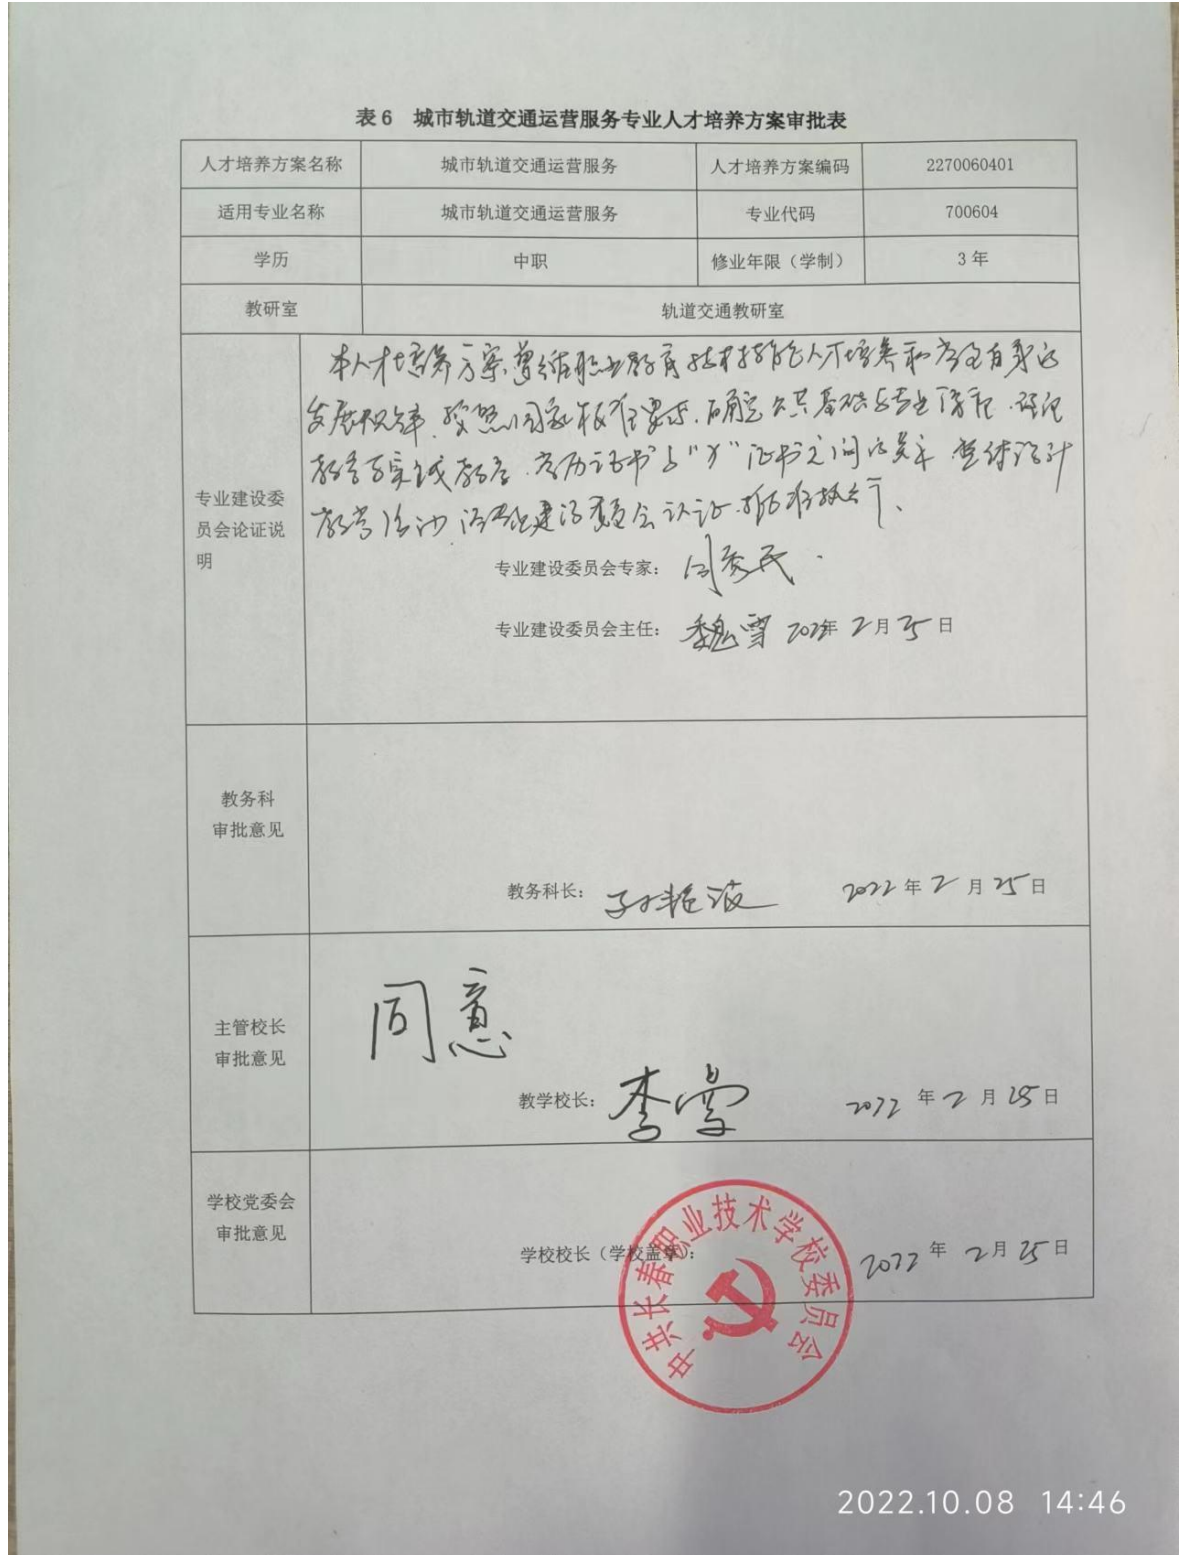 表6 城市轨道交通运营服务专业人才培养方案审批表
人才培养方案名称 城市轨道交通运营服务 人才培养方案编码 2270060401
适用专业名称 城市轨道交通运营服务 专业代码 700604
学历 中职 修业年限（学制） 3年
教研室 轨道交通教研室
专业建设委
员会论证说
明
本人才培养方案遵循职业教育技术技能人才培养和学生自身的
发展规律，按照国家标准要求，确定公共基础与专业课程、理论
教学与实践教学、学历证书与“X”证书之间的关系，整体设计
教学活动，经专业建设委员会认证，批准执行、
专业建设委员会专家：闫秀民
专业建设委员会主任：魏雪 2022年2月25日
教务科
审批意见
教务科长：孙 波 2022年2月25日
主管校长
审批意见
同意
教学校长：李 2022年2月25日
学校党委会
审批意见
学校校长（学校盖章）： 2022年2月25日
中共长春职业技术学校委员会
2022.10.08 14:46